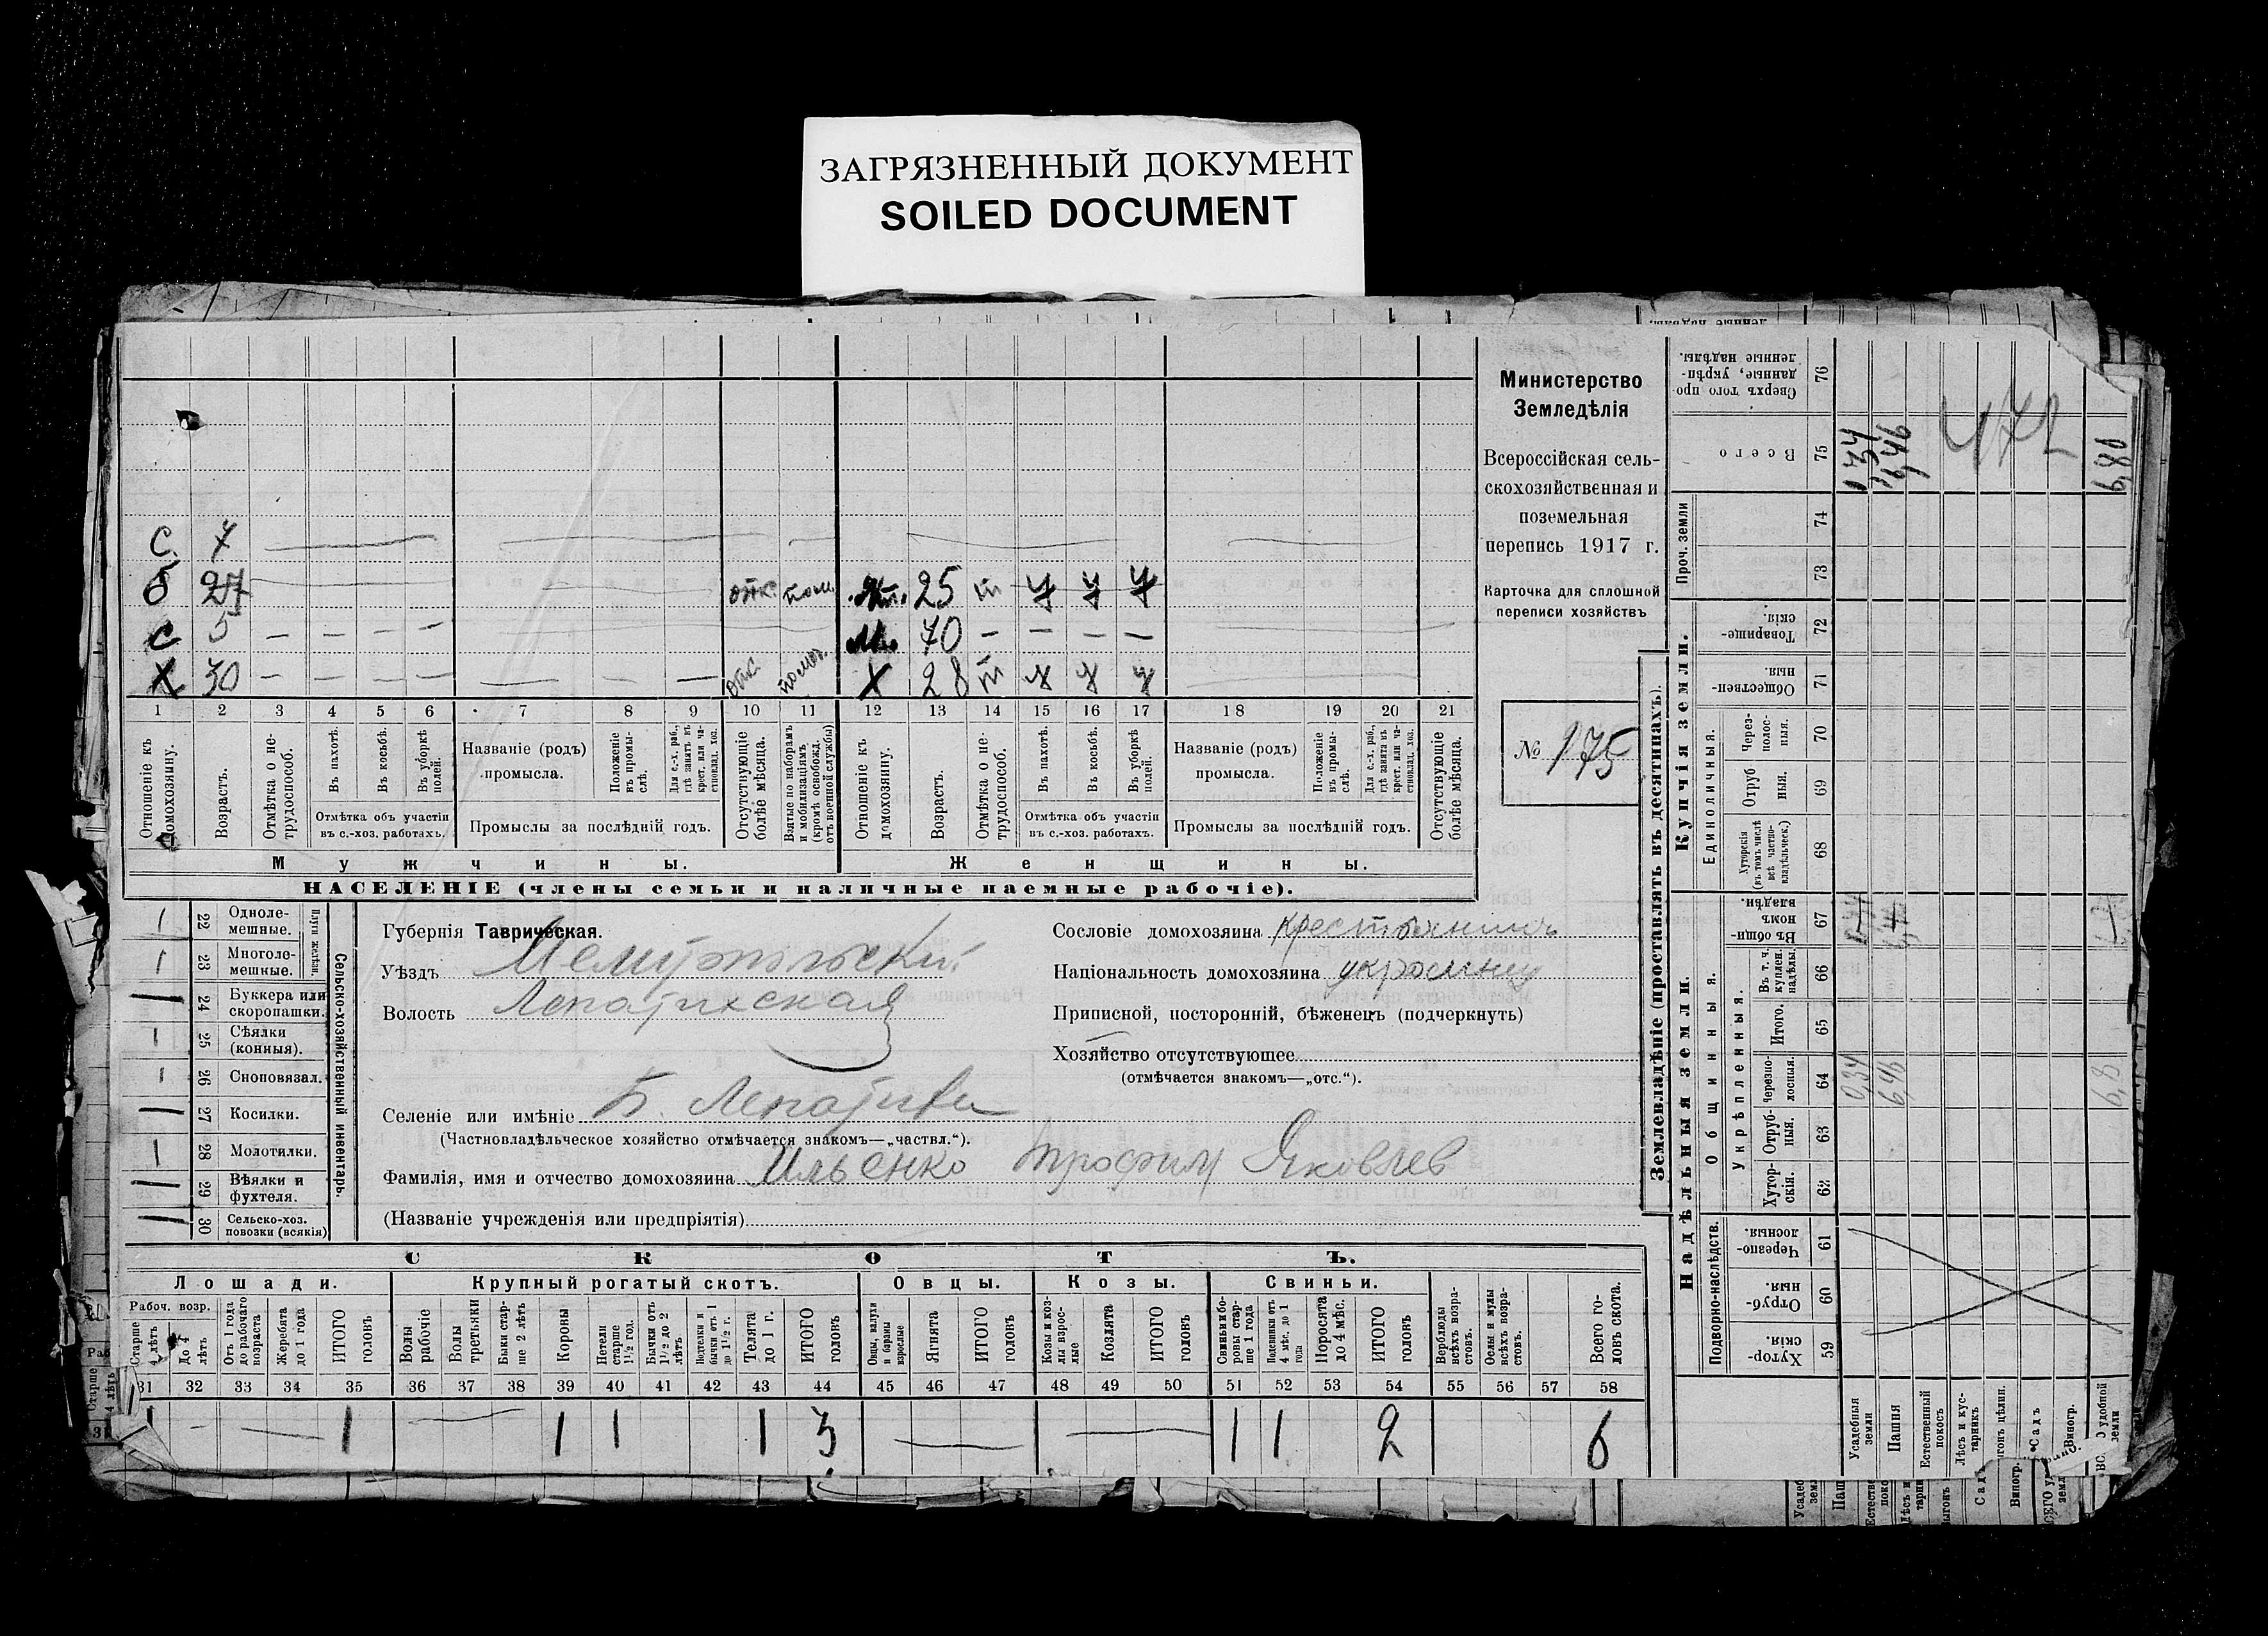 ЗАГРЯЗНЕННЫЙ ДОКУМЕНТ
SOILED DOCUMENT
Министерство
Земледѣлія
Всероссійская сель-
скохозяйственная и
поземельная
перепись 1917 г.
Карточка для сплошной
переписи хозяйствъ
№ 175
С 7
б 27 отк. пом. 25 У У У
с 5 — — — — м. 70 — — — —
X 30 — — — — — — — X 28
1 2 3 4 5 6 7 8 9 10 11 12 13 14 15 16 17 18 19 20 21
Отношеніе къ домохозяину.
Возрастъ.
Отмѣтка о не-трудоспособ.
Въ пахотѣ.
Въ косьбѣ.
Въ уборкѣ полей.
Отмѣтка объ участіи
въ с.-хоз. работахъ.
Названіе (родъ)
промысла.
Положеніе въ промы-слѣ.
Для с.-х. раб., гдѣ занятъ въ крест. или ча-стновлад. хоз.
Промыслы за послѣдній годъ.
Отсутствующіе болѣе мѣсяца.
Взятые по наборамъ и мобилизаціямъ (кромѣ освобожд. отъ военной службы)
Отношеніе къ домохозяину.
Возрастъ.
Отмѣтка о не-трудоспособ.
Въ пахотѣ.
Въ косьбѣ.
Въ уборкѣ полей.
Отмѣтка объ участіи
въ с.-хоз. работахъ.
Названіе (родъ)
промысла.
Положеніе въ промы-слѣ.
Для с.-х. раб., гдѣ занята въ крест. или ча-стновлад. хоз.
Промыслы за послѣдній годъ.
Отсутствующіе болѣе мѣсяца.
Мужчины. Женщины.
НАСЕЛЕНІЕ (члены семьи и наличные наемные рабочіе).
Сельско-хозяйственный инвентарь.
Плуги желѣзн.
22 Одноле-мешные.
23 Многоле-мешные.
24 Буккера или скоропашки.
25 Сѣялки (конныя).
26 Сноповязал.
27 Косилки.
28 Молотилки.
29 Вѣялки и фухтеля.
30 Сельско-хоз. повозки (всякія)
Губернія Таврическая.
Уѣздъ Мелитопольский
Волость Лепатихская
Селеніе или имѣніе Б. Лепатиха
(Частновладѣльческое хозяйство отмѣчается знакомъ—„частвл.“).
Фамилія, имя и отчество домохозяина Ильенко Трофим Яковлев
(Названіе учрежденія или предпріятія)
Сословіе домохозяина крестьянинъ
Національность домохозяина украинец
Приписной, посторонній, бѣженецъ (подчеркнуть)
Хозяйство отсутствующее
(отмѣчается знакомъ—„отс.“).
СКОТЪ.
Лошади. Крупный рогатый скотъ. Овцы. Козы. Свиньи.
Рабоч. возр.
Старше 4 лѣтъ
До 4 лѣтъ
Отъ 1 года до рабочаго возраста
Жеребята до 1 года
ИТОГО головъ
Волы рабочіе
Волы третьяки
Быки стар-ше 2 лѣтъ
Коровы
Нетели старше 1½ год.
Бычки отъ 1½ до 2 лѣтъ
Телята до 1 г.
ИТОГО головъ
Овцы, валухи и бараны взрослые
Ягнята
ИТОГО головъ
Козы и коз-лы взрос-лые
Козлята
ИТОГО головъ
Свиньи и бо-ровы стар-ше 1 года
Подсвинки отъ 4 мѣс. до 1 года
Поросята до 4 мѣс.
ИТОГО головъ
Верблюды всѣхъ возра-стовъ.
Ослы и мулы всѣхъ возра-стовъ.
Всего го-ловъ скота.
31 32 33 34 35 36 37 38 39 40 41 42 43 44 45 46 47 48 49 50 51 52 53 54 55 56 57 58
1 — — 1 — 1 1 1 3 — — 1 1 2 6
Землевладѣніе (проставлять въ десятинахъ).
Купчія земли.
Надѣльныя земли.
Сверхъ того про данные, укрѣп-ленные надѣлы. 76
Всего 75 6,46 472 6,80
Проч. земли 74 73
Товарище-скія. 72
Обществен-ныя. 71
Единоличныя.
Через-полос-ныя. 70
Отруб ныя. 69
Хуторскія (въ томъ числѣ всѣ частно-владѣльческ.) 68
Общинныя.
Въ общи номъ владѣн. 67
Укрѣпленныя.
Въ т. ч. куплен. надѣлы. 66
Итого. 65
Черезпо-лосныя. 64 0,34 6,46 6,8
Отруб-ныя. 63
Хутор-скія. 62
Подворно-наслѣдств.
Черезпо-лосныя. 61
Отруб-ныя. 60
Хутор-скія. 59
Усадебныя земли
Пашня
Естественный покосъ
Лѣсъ и кус-тарникъ
Садъ
Виногр.
удобной земли